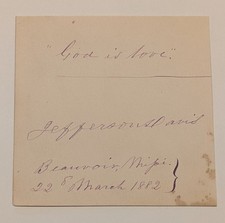 "God is love".
Jefferson Davis
Beauvoir, Missi.
22d March 1882